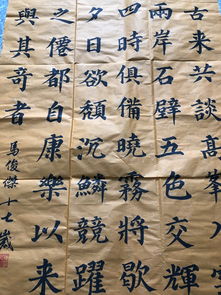 古來共談高峯入
兩岸石壁五色交輝
四時俱備曉霧將歇
夕日欲頹沉鱗競躍
之僊都自康樂以來
與其奇者
馬俊傑十七歲